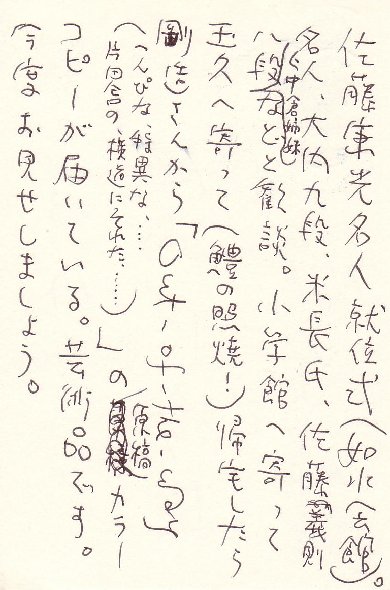 佐藤康光名人就位式(如水会館)。
名人、大内九段、米長氏、佐藤義則
八段などと歓談。小学館へ寄って
中倉姉妹
玉久へ寄って(鱧の照焼!)帰宅したら
剛造さんから「
(へんぴな、怪異な、……
片田舎の、横道にそれた、……)」の原稿カラー
コピーが届いている。芸術品です。
今度お見せしましょう。